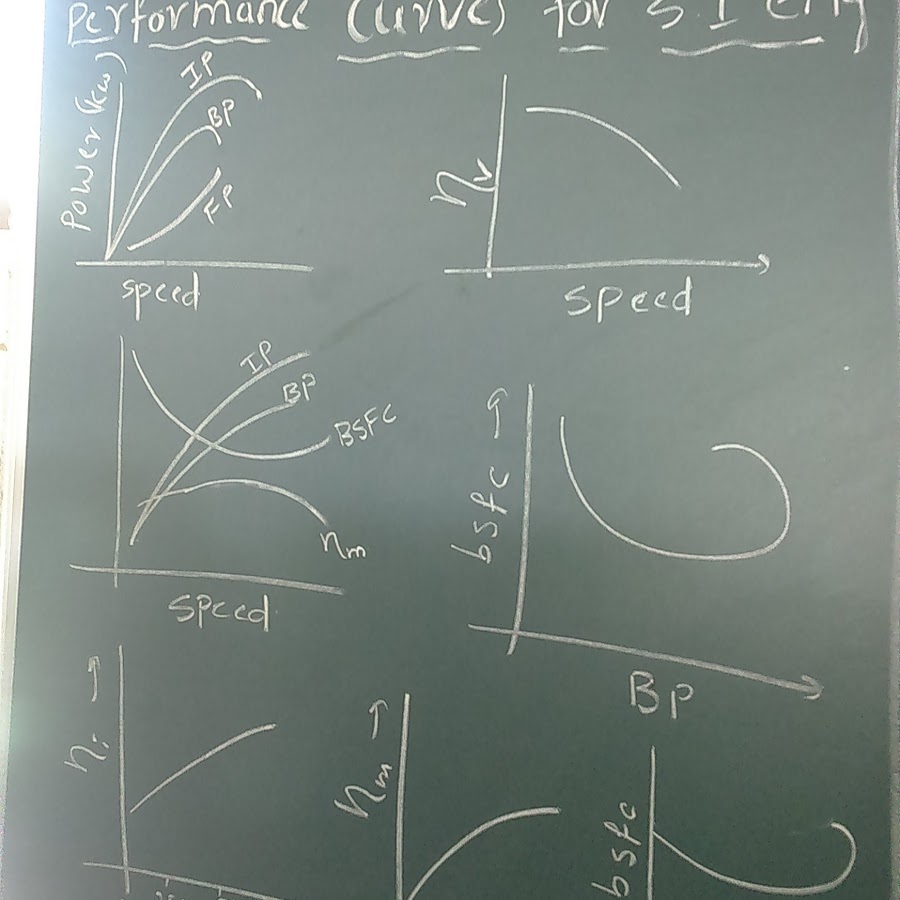 Performance Curve) for S I eng
Power (kw)
IP
BP
FP
speed
ηv
speed
IP
BP
BSFC
ηm
speed
bsfc
BP
ηi
ηm
bsfc